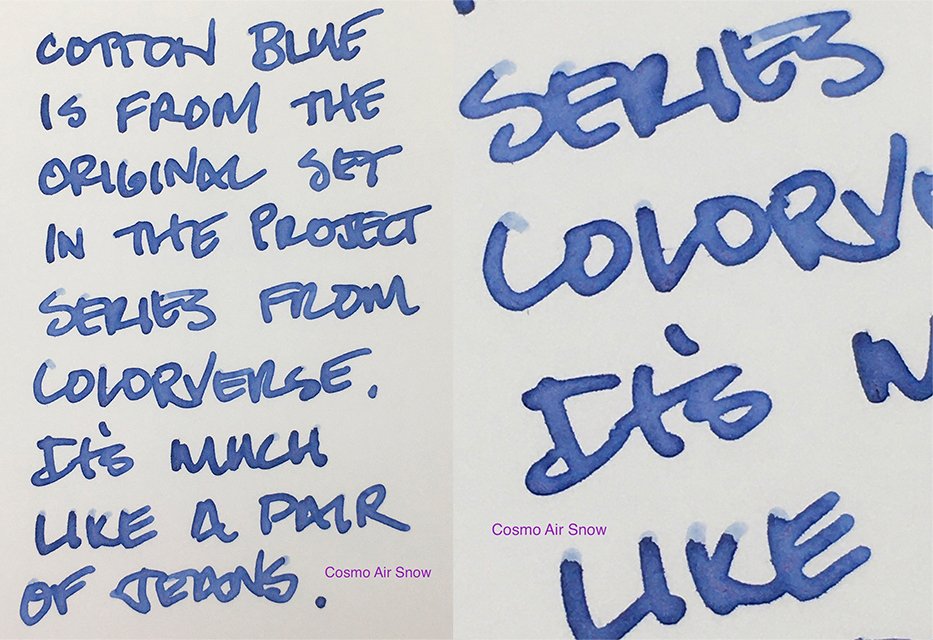 COTTON BLUE
IS FROM THE
ORIGINAL SET
IN THE PROJECT
SERIES FROM
COLORVERSE.
It's MUCH
LIKE A PAIR
OF JEANS.
Cosmo Air Snow
SERIES
COLORVE
It's M
Cosmo Air Snow
LIKE